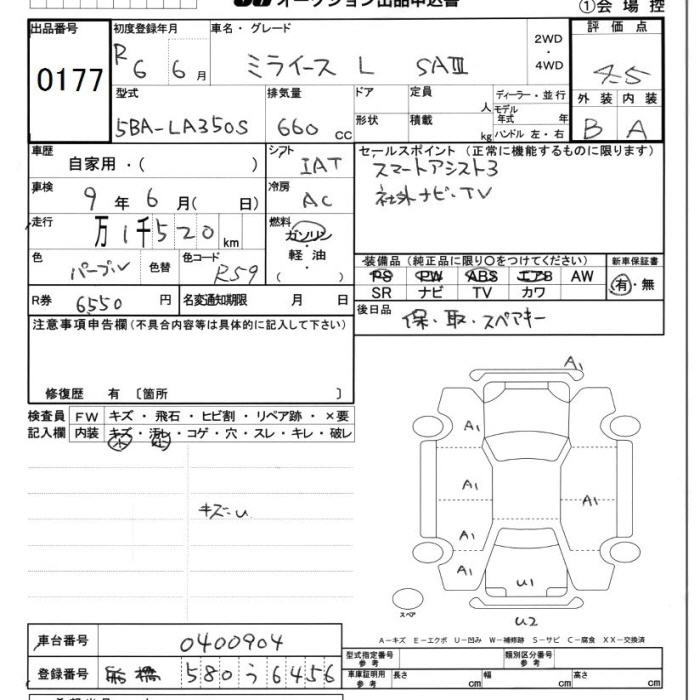 オークション出品申込書 ①会場控
出品番号 初度登録年月 車名・グレード 評価点
0177 R6 6月 ミライース L SAⅢ 2WD・4WD 4.5
型式 排気量 ドア 定員 人 ディーラー・並行 外装 内装
5BA-LA350S 660cc 形状 積載 kg モデル年式 年 ハンドル 左・右 B A
車歴 自家用・( ) シフト IAT セールスポイント(正常に機能するものに限ります)
車検 9年6月( 日) 冷房 AC スマートアシスト3
社外ナビ・TV
走行 万1千520km 燃料 ガソリン・軽油( )
色 パープル 色替 色コード R59 装備品(純正品に限り○をつけてください) 新車保証書
PS PW ABS エアB AW 有・無
SR ナビ TV カワ
R券 6550円 名変通知期限 月 日 後日品 保・取・スペアキー
注意事項申告欄(不具合内容等は具体的に記入して下さい)
修復歴 有〔箇所 〕
検査員 FW キズ・飛石・ヒビ割・リペア跡・×要
記入欄 内装 キズ・汚れ・コゲ・穴・スレ・キレ・破レ
キズ=u
A1
A1
A1 A1
A1
A1 U1
スペア U2
A-キズ E-エクボ U-凹み W-補修跡 S-サビ C-腐食 XX-交換済
車台番号 0400904
型式指定番号 参考 類別区分番号 参考
登録番号 船橋 580 う 6456 車庫証明用 参考 長さ cm 幅 cm 高さ cm